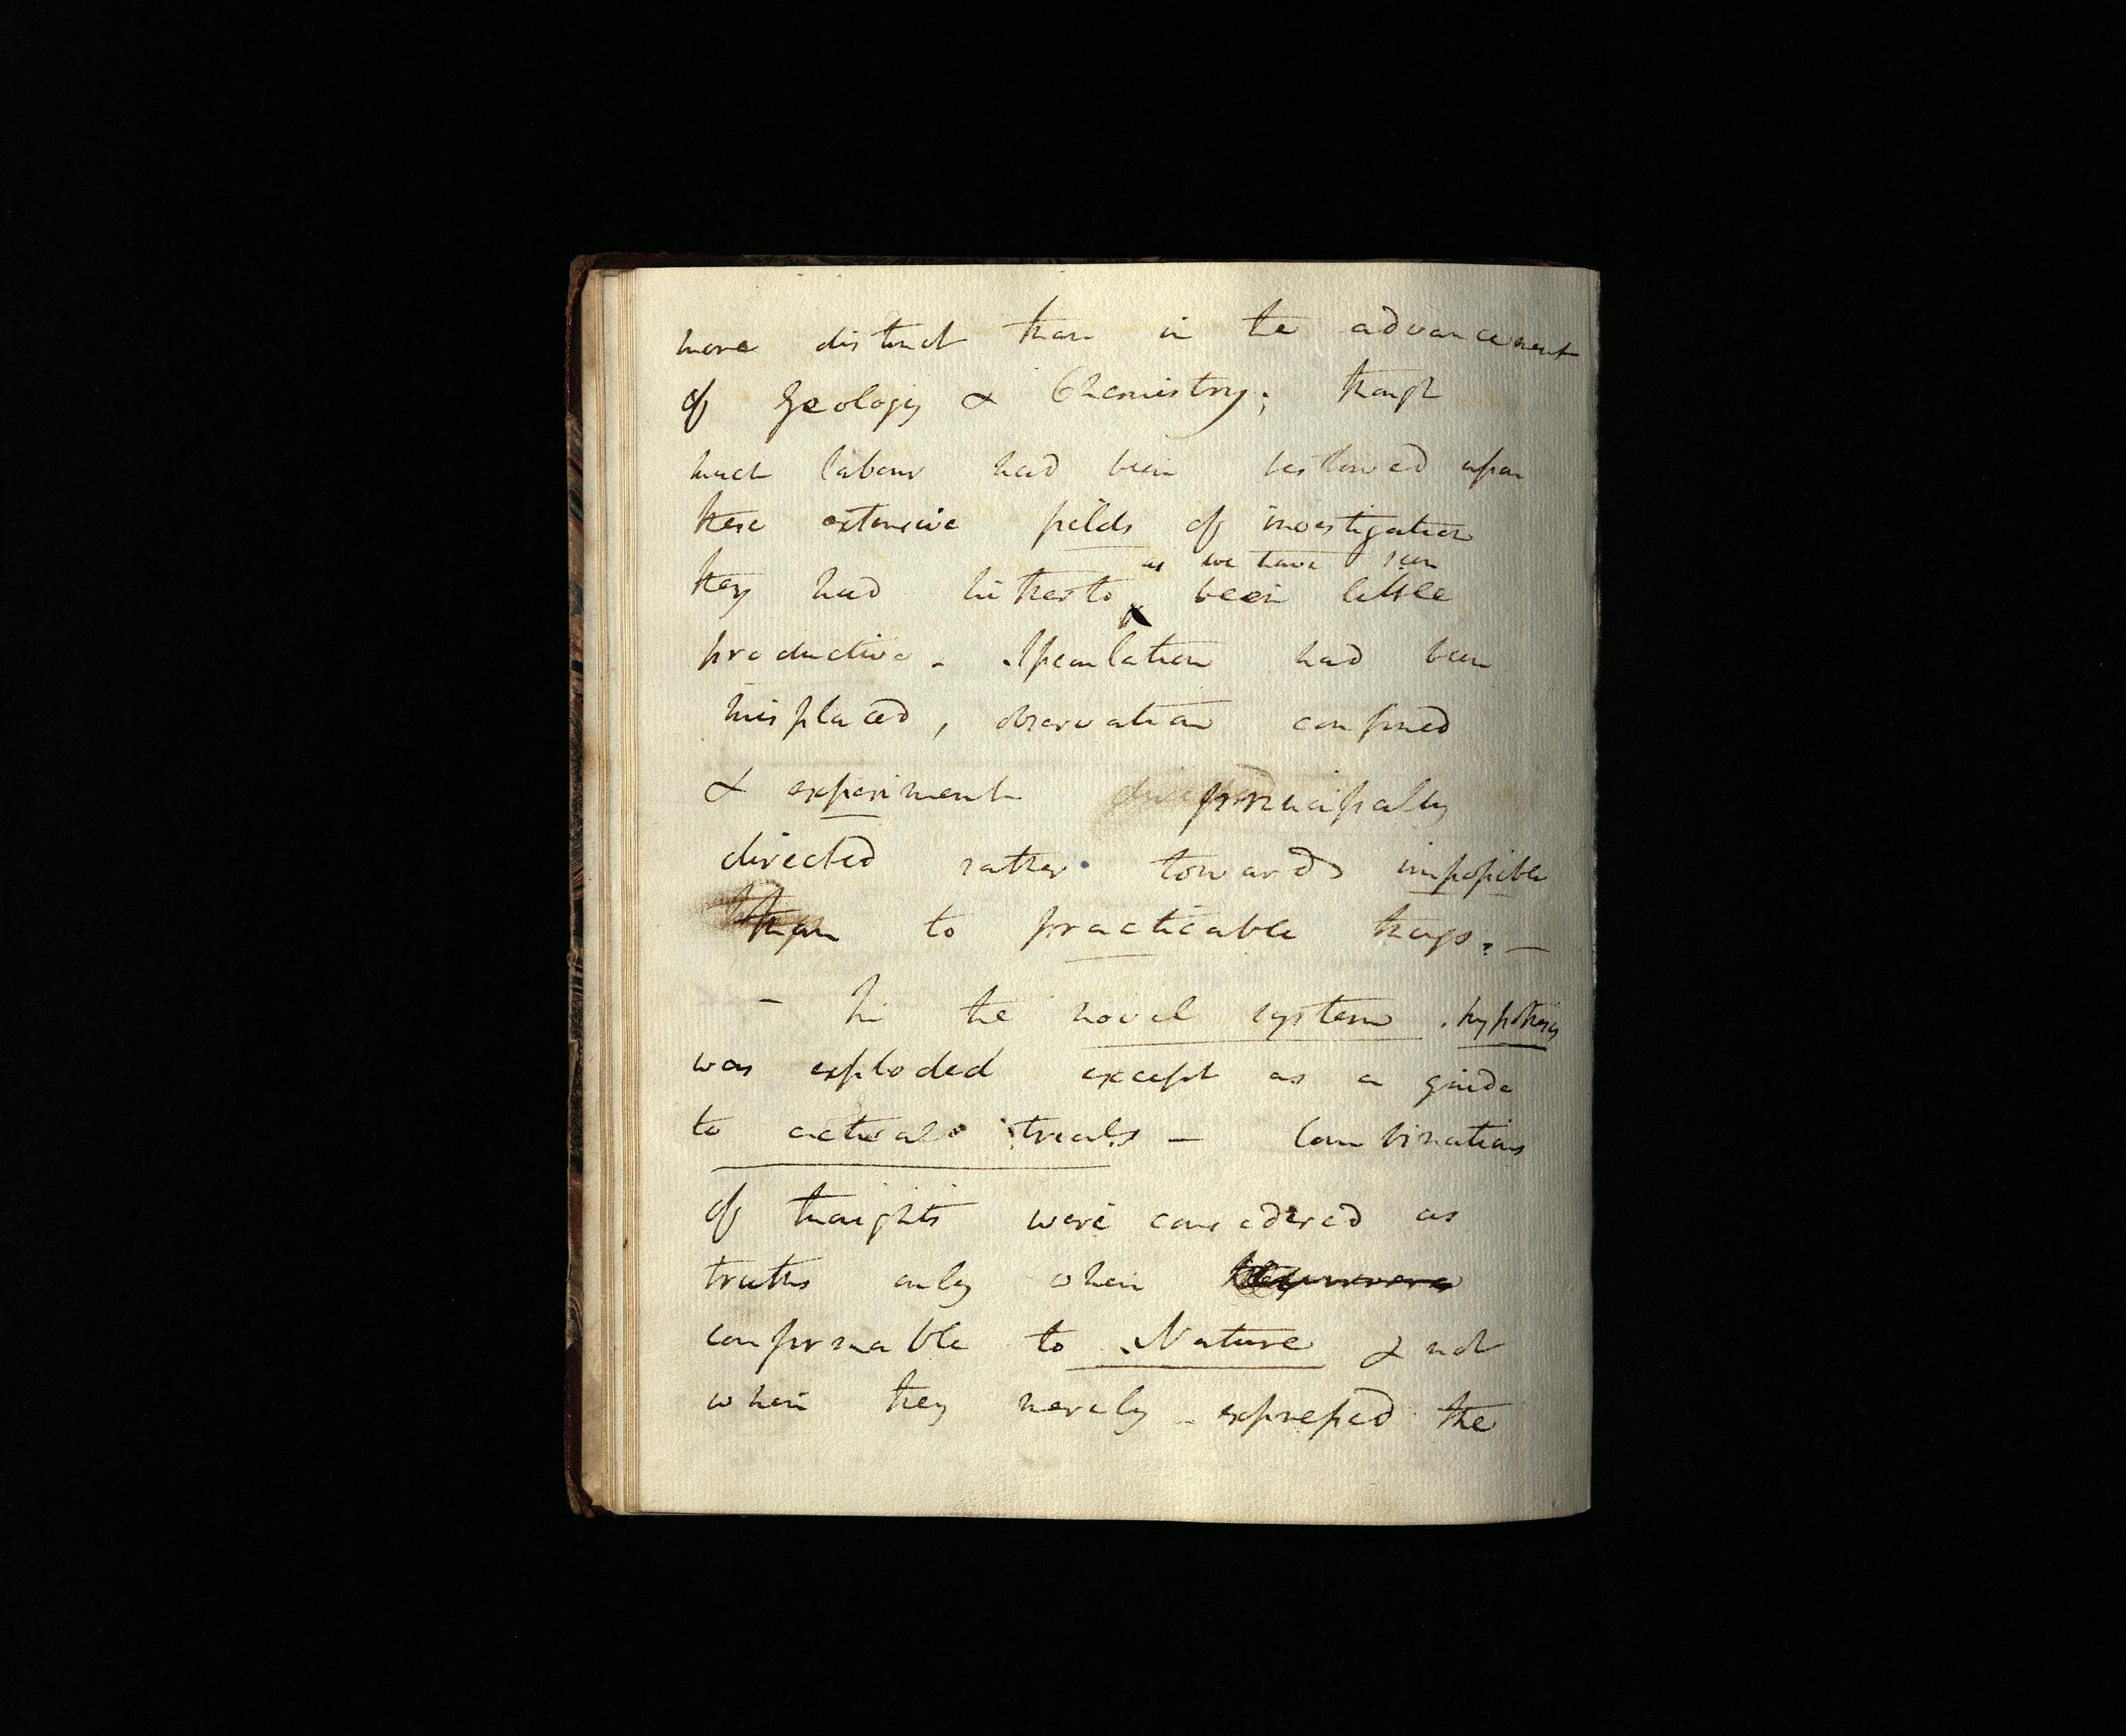 more distinct than in the advancement
of Geology & Chemistry; though
much labour had been bestowed upon
these extensive fields of investigation
as we have seen
they had hitherto been little
productive - Speculation had been
misplaced, observation confined
& experiment principally
directed rather towards impossible
than to practicable things. -
- In the novel system hypothesis
was exploded except as a guide
to actual trials - Combinations
of thoughts were considered as
truths only when they were
conformable to Nature & not
when they merely expressed the